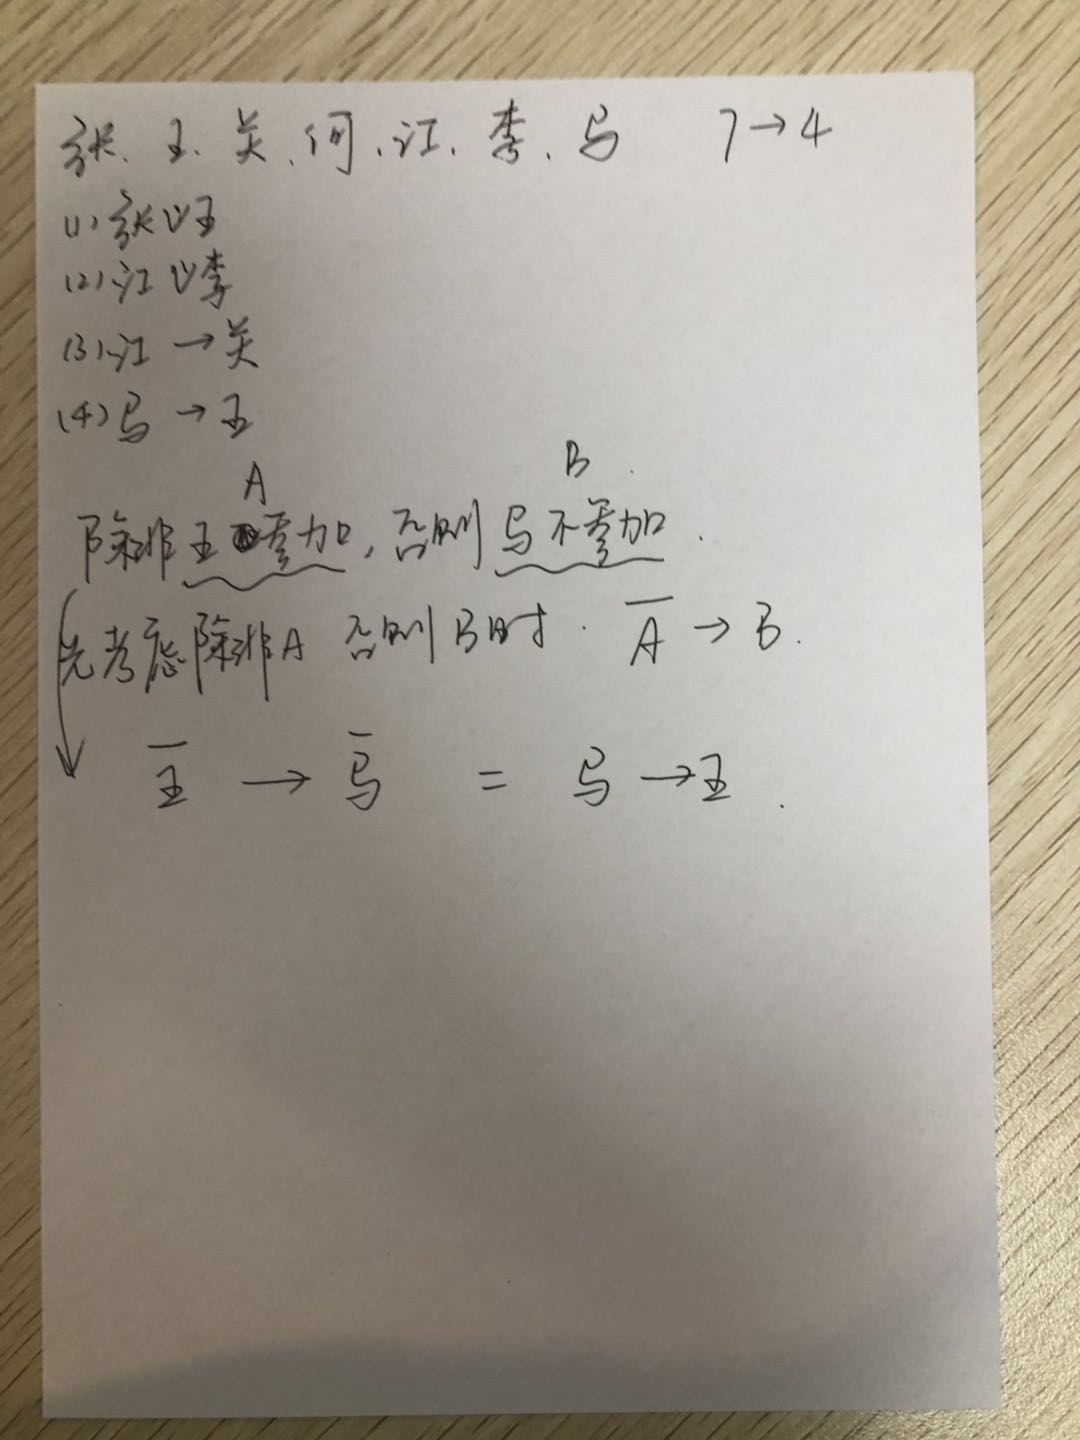 张、王、关、何、江、李、马 7→4
(1) 张∀王
(2) 江∀李
(3) 江→关
(4) 马→王
A B
除非王参加,否则马不参加.
先考虑除非A 否则B时. A̅→B.
王̅→马̅ = 马→王.